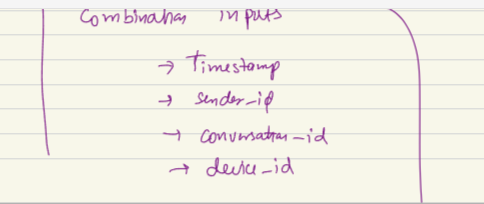 Combination inputs
→ Timestamp
→ sender_ip
→ conversation_id
→ device_id